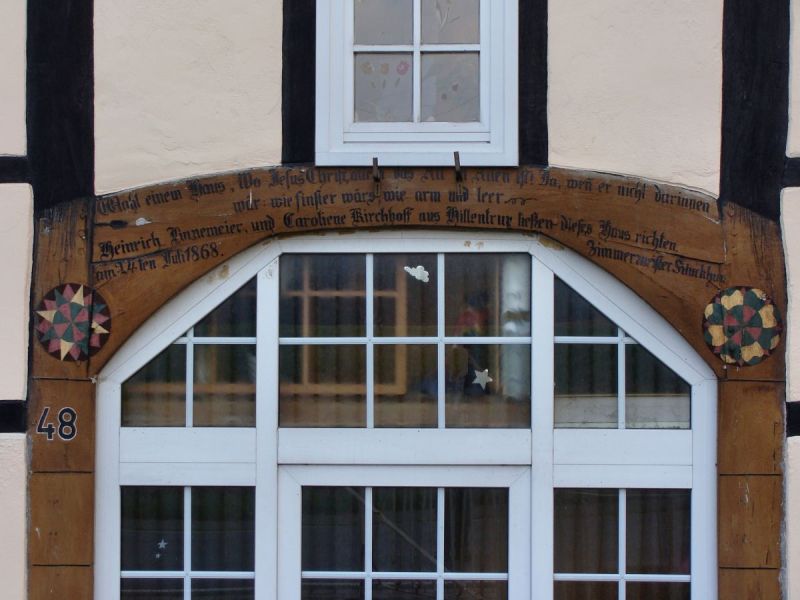 Wohl einem Haus, Wo Jesus Christ allein das All in Allen ist Ja, wen er nicht darinnen
wär: wie finster wärs, wie arm und leer.
Heinrich Annemeier, und Caroliene Kirchhoff aus Hillentrup ließen dieses Haus richten
am 24ten Juli 1868. Zimmermeister
48